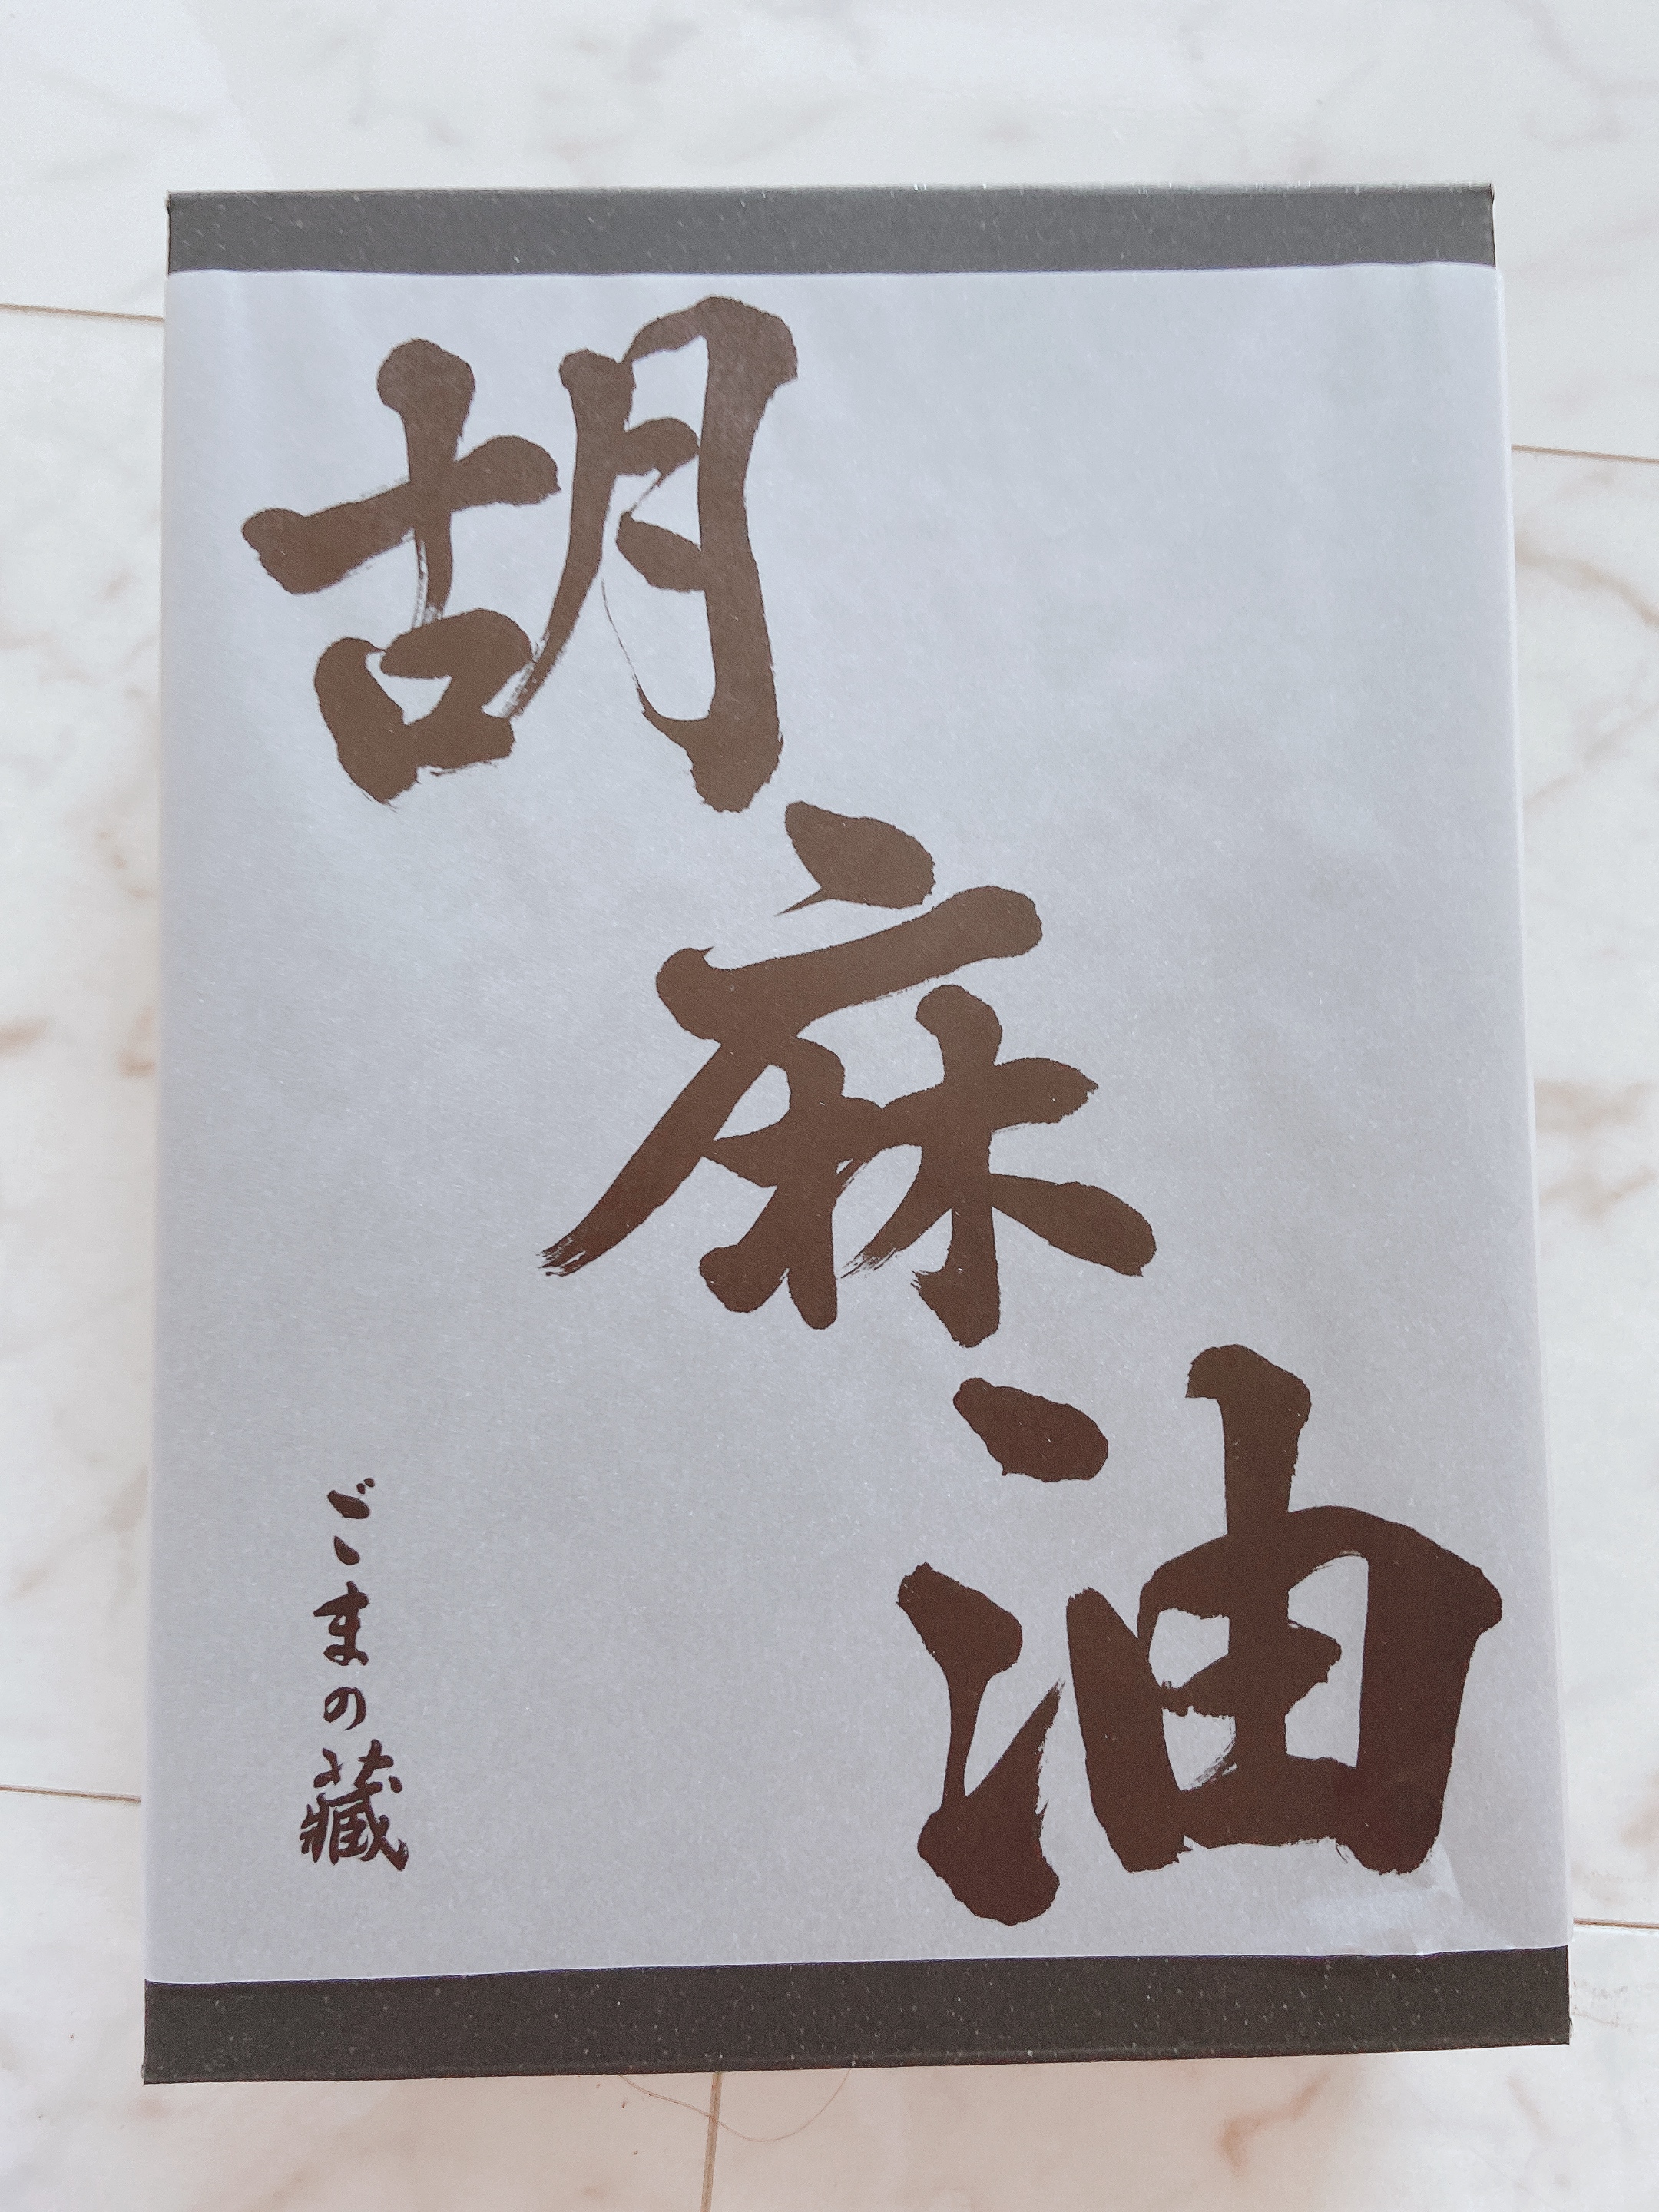 胡麻油
ごまの藏